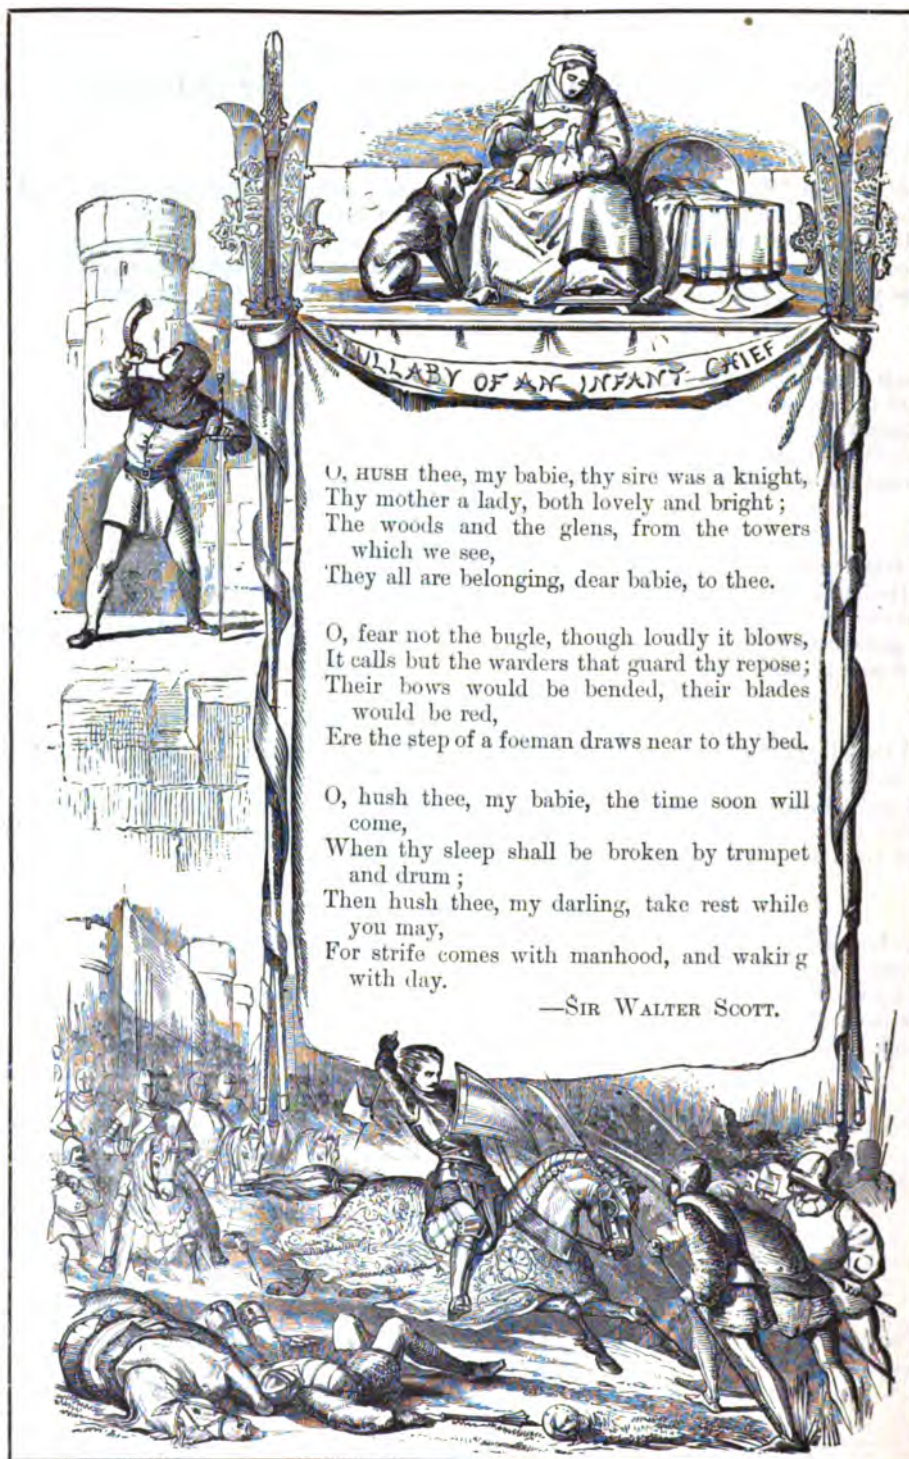 LULLABY OF AN INFANT CHIEF
O, HUSH thee, my babie, thy sire was a knight,
Thy mother a lady, both lovely and bright;
The woods and the glens, from the towers
which we see,
They all are belonging, dear babie, to thee.
O, fear not the bugle, though loudly it blows,
It calls but the warders that guard thy repose;
Their bows would be bended, their blades
would be red,
Ere the step of a foeman draws near to thy bed.
O, hush thee, my babie, the time soon will
come,
When thy sleep shall be broken by trumpet
and drum;
Then hush thee, my darling, take rest while
you may,
For strife comes with manhood, and waking
with day.
—SIR WALTER SCOTT.